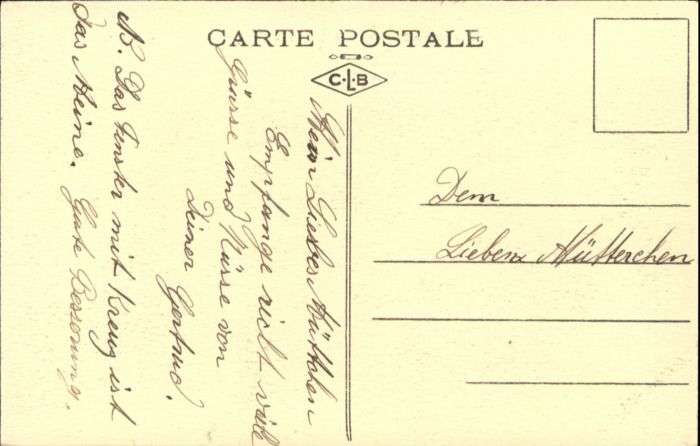 CARTE POSTALE
C.L.B
Mein Liebes Muttchen
Empfange recht viele
Grüsse und Küsse von
Deiner Gertrud.
NB. Das Fenster mit Kreuz ist
das Meine. Gute Besserung.
Dem
Lieben Mütterchen